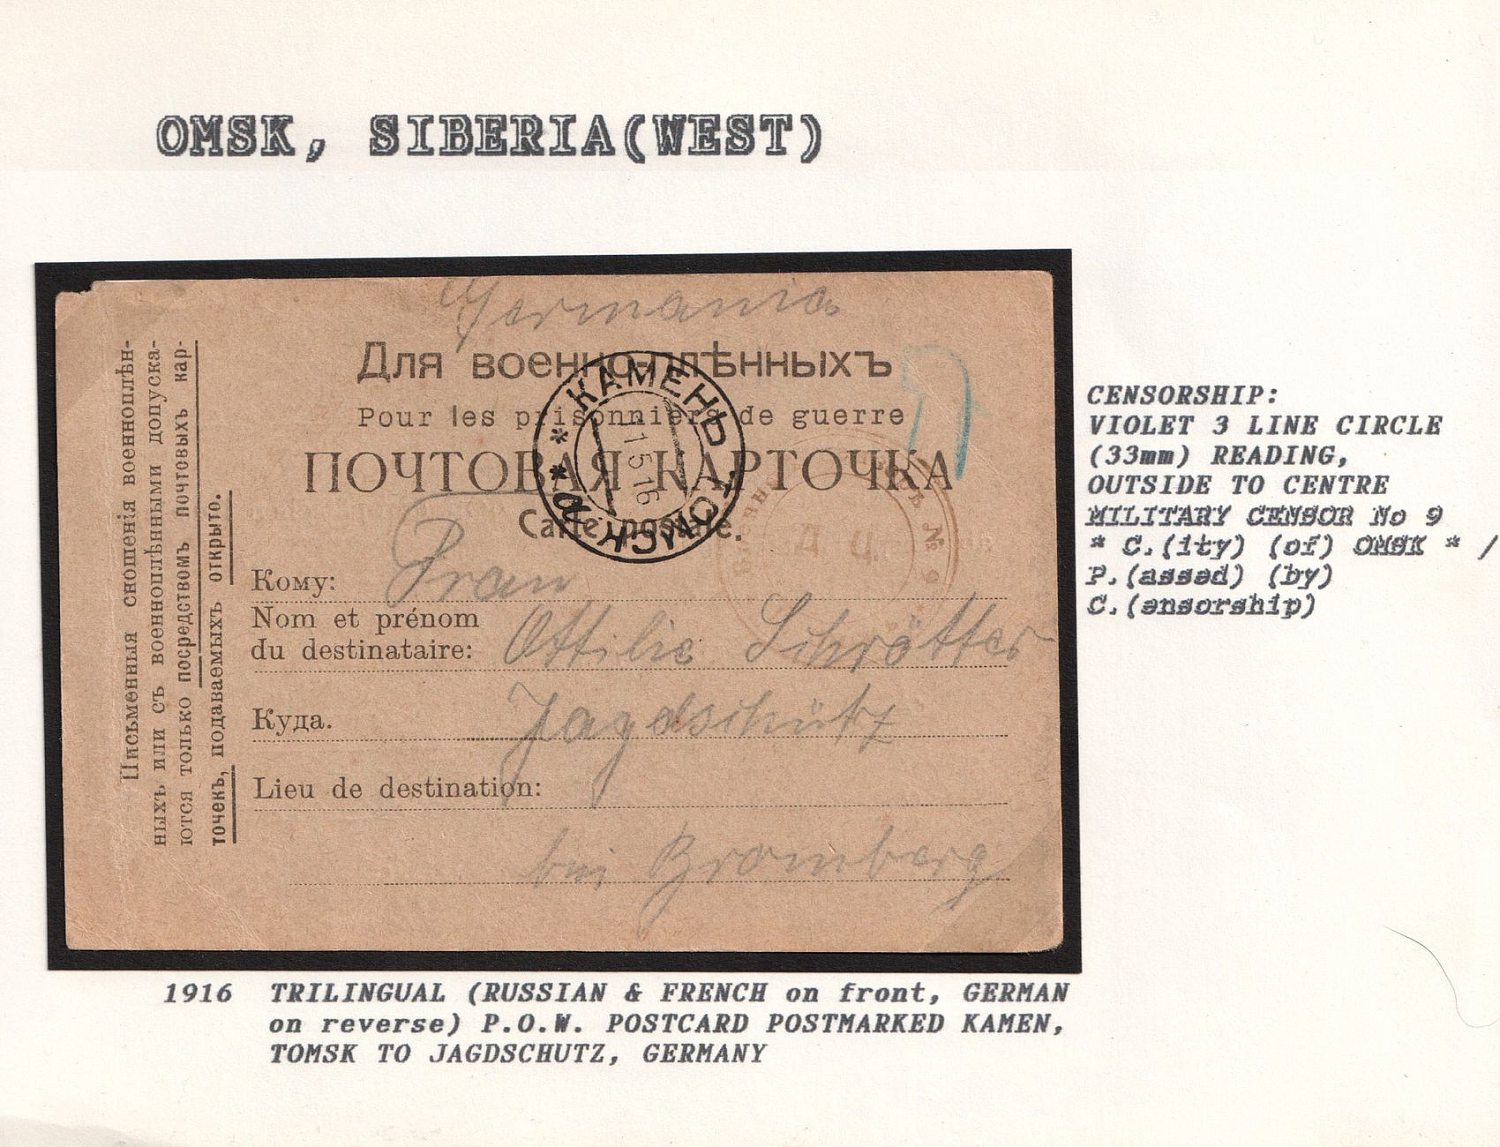 OMSK, SIBERIA(WEST)
Germania
Для военно-плѣнныхъ
Pour les prisonniers de guerre
ПОЧТОВАЯ КАРТОЧКА
Carte postale.
КАМЕНЬ ТОМСК. * * a
1 5 16
Д. Ц.
№ 9
Кому: Frau
Nom et prénom
du destinataire: Ottilie Schrötter
Куда. Jagdschütz
Lieu de destination:
bei Bromberg
Письменныя сношенія военноплѣн-
ныхъ или съ военноплѣнными допуска-
ются только посредствомъ почтовыхъ кар-
точекъ, подаваемыхъ открыто.
CENSORSHIP:
VIOLET 3 LINE CIRCLE
(33mm) READING,
OUTSIDE TO CENTRE
MILITARY CENSOR No 9
* C.(ity) (of) OMSK * /
P.(assed) (by)
C.(ensorship)
1916 TRILINGUAL (RUSSIAN & FRENCH on front, GERMAN
on reverse) P.O.W. POSTCARD POSTMARKED KAMEN,
TOMSK TO JAGDSCHUTZ, GERMANY